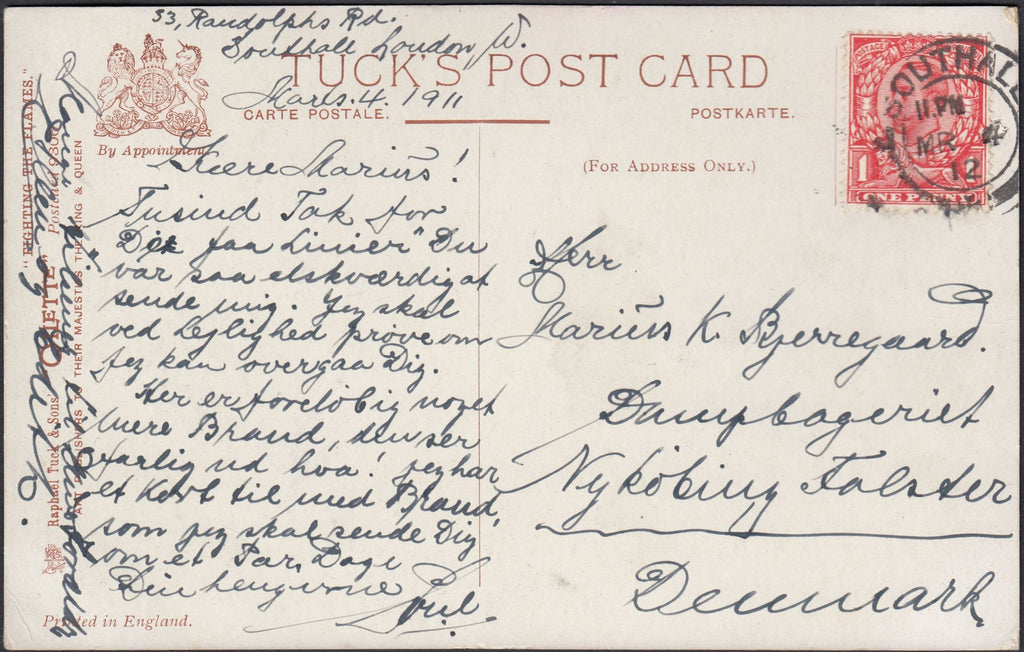 33, Randolphs Rd.
Southall London W.
Marts. 4. 1911
TUCK'S POST CARD
CARTE POSTALE.
POSTKARTE.
By Appointment
(FOR ADDRESS ONLY.)
Kære Marius!
Tusind Tak for
Die faa Linier" Du
var saa elskværdig at
sende mig. Jeg skal
ved Lejlighed prøve om
jeg kan overgaa Dig.
Her er foreløbig noget
mere Brand, den ser
farlig ud hva! jeg har
et Kort til med Brand,
som jeg skal sende Dig
om et Par Dage
Din hengivne
Poul.
Herr
Marius K. Bjerregaard.
Dampbageriet
Nyköbing Falster
Denmark
SOUTHALL
11.PM
4
MR
12
POSTAGE
1
ONE PENNY
"FIGHTING THE FLAMES."
Raphael Tuck & Sons' "OILETTE" Postcard 9306
ART PUBLISHERS TO THEIR MAJESTIES THE KING & QUEEN
Printed in England.